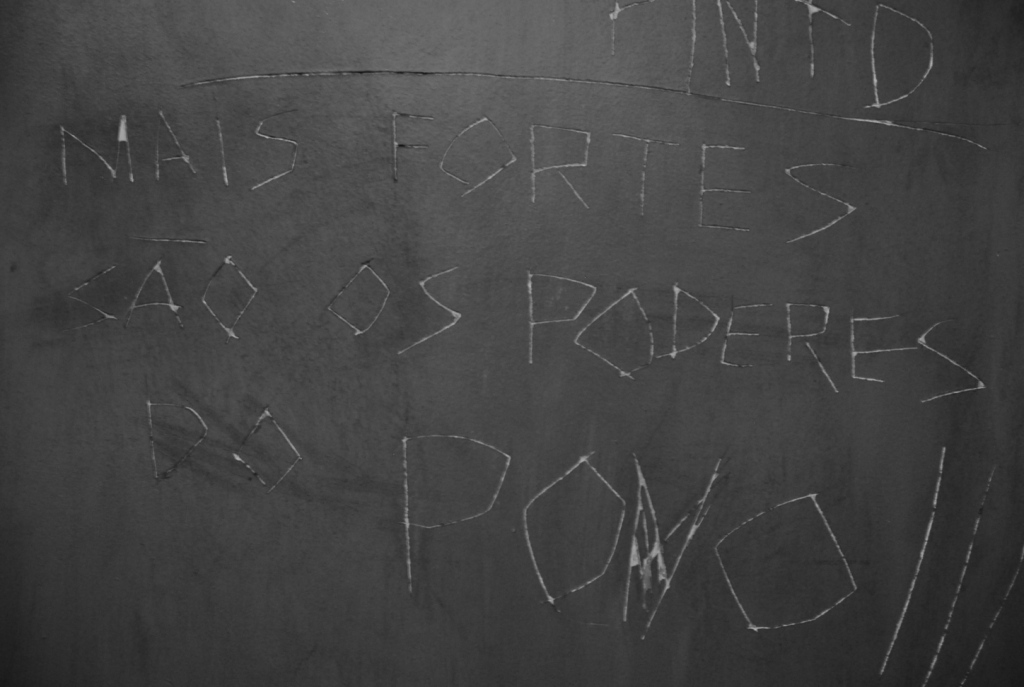 MAIS FORTES
SÃO OS PODERES
DO POVO //